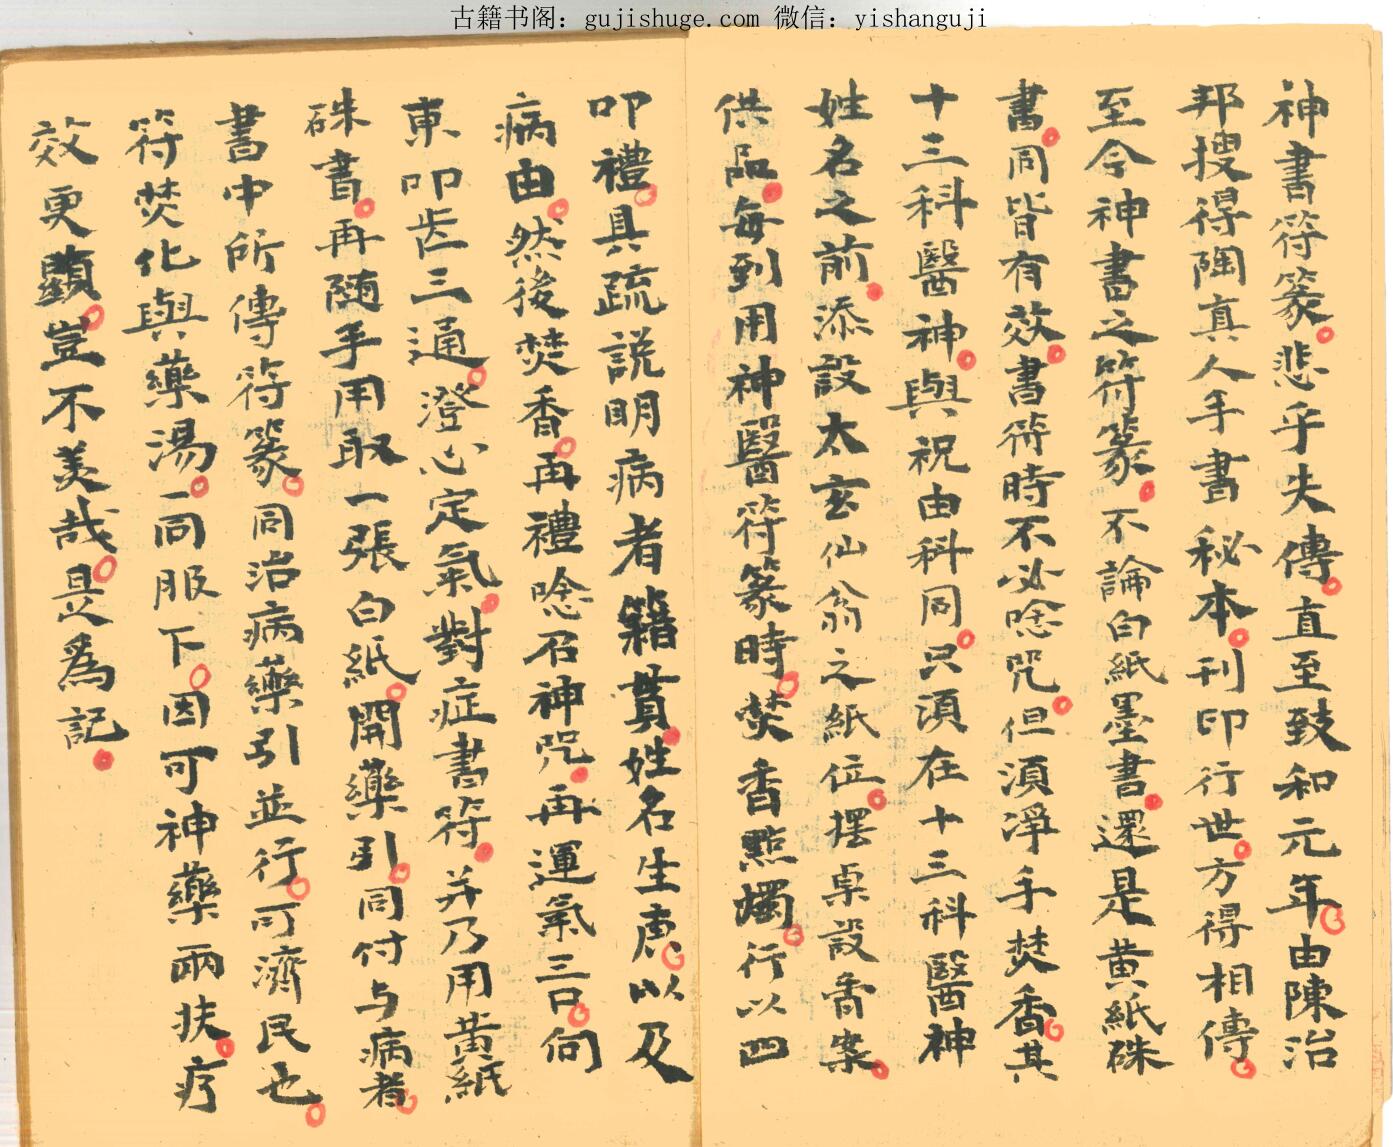 古籍书阁：gujishuge.com 微信：yishanguji
神書符篆。悲乎失傳。直至致和元年。由陳治
邦搜得陶真人手書秘本。刊印行世。方得相傳。
至今神書之符篆。不論白紙墨書。還是黄紙硃
書。同皆有效。書符時不必唸咒。但須凈手焚香。其
十三科醫神。與祝由科同。只須在十三科醫神
姓名之前。添設太玄仙翁之紙位。擺桌設香案。
供品。每到用神醫符篆時。焚香點燭。行以四
叩禮。具疏説明病者籍貫。姓名生庚。以及
病由。然後焚香。再禮唸召神咒。再運氣三口。向
東叩齿三通。澄心定氣。對症書符。并乃用黄紙
硃書。再随手用取一張白紙。開藥引。同付与病者。
書中所傳符篆。同治病藥引並行。可濟民也。
符焚化與藥湯。一同服下。因可神藥兩扶。疗
效更顯。豈不美哉。是為記。